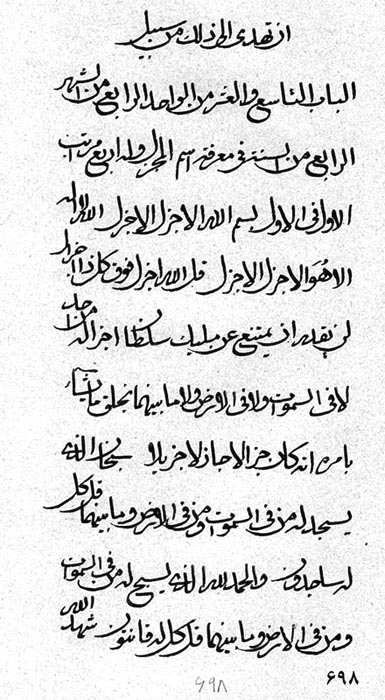 ان تهدى الى ذلك من سبيل
الباب التاسع والعشر من الواحد الرابع من الشهر
الرابع من السنة فى معرفة اسم المجزل وله اربع مراتب
الاول فى الاول بسم الله الاجزل الاجزل الله لا اله
الا هو الاجزل الاجزل قل الله اجزل فوق كل ذا اجزال
لن يقدر ان يمتنع عن مليك سلطان اجزاله من احد
لا فى السموات ولا فى الارض ولا ما بينهما يخلق ما يشاء
بامره انه كان جزالا جازلا جزيلا سبحان الذى
يسجد له من فى السموات ومن فى الارض وما بينهما قل كل
له ساجدون والحمد لله الذى يسبح له من فى السموات
ومن فى الارض وما بينهما قل كل له قانتون شهد الله
۶۹۸
۶۹۸